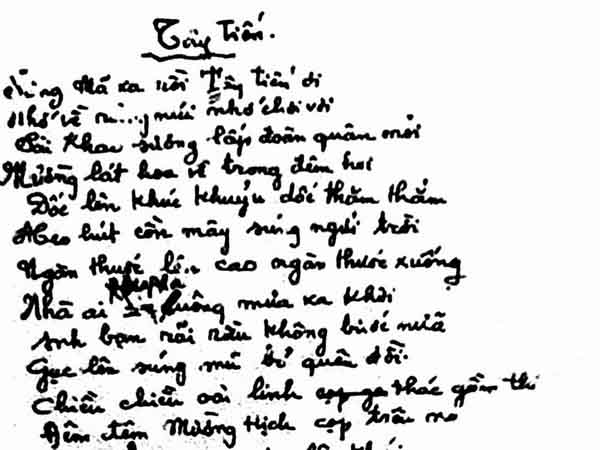 Tây Tiến.
Sông Mã xa rồi Tây tiến ơi
Nhớ về rừng núi nhớ chơi vơi
Sài Khao sương lấp đoàn quân mỏi
Mường lát hoa về trong đêm hơi
Dốc lên khúc khuỷu dốc thăm thẳm
Heo hút cồn mây súng ngửi trời
Ngàn thước lên cao ngàn thước xuống
Nhà ai Pha luông mưa xa khơi
Anh bạn dãi dầu không bước nữa
Gục lên súng mũ bỏ quên đời.
Chiều chiều oai linh thác gầm thé
Đêm đêm Mường Hịch cọp trêu